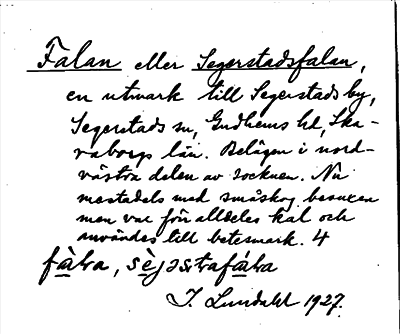 Falan eller Segerstadsfalan,
en utmark till Segerstads by,
Segerstads sn, Gudhems hd, Ska-
raborgs län. Belägen i nord-
västra delen av socknen. Nu
mestadels med småskog bevuxen
men var förr alldeles kal och
användes till betesmark. 4
fàlva, sèjəstrafálva
J. Lundahl 1927.